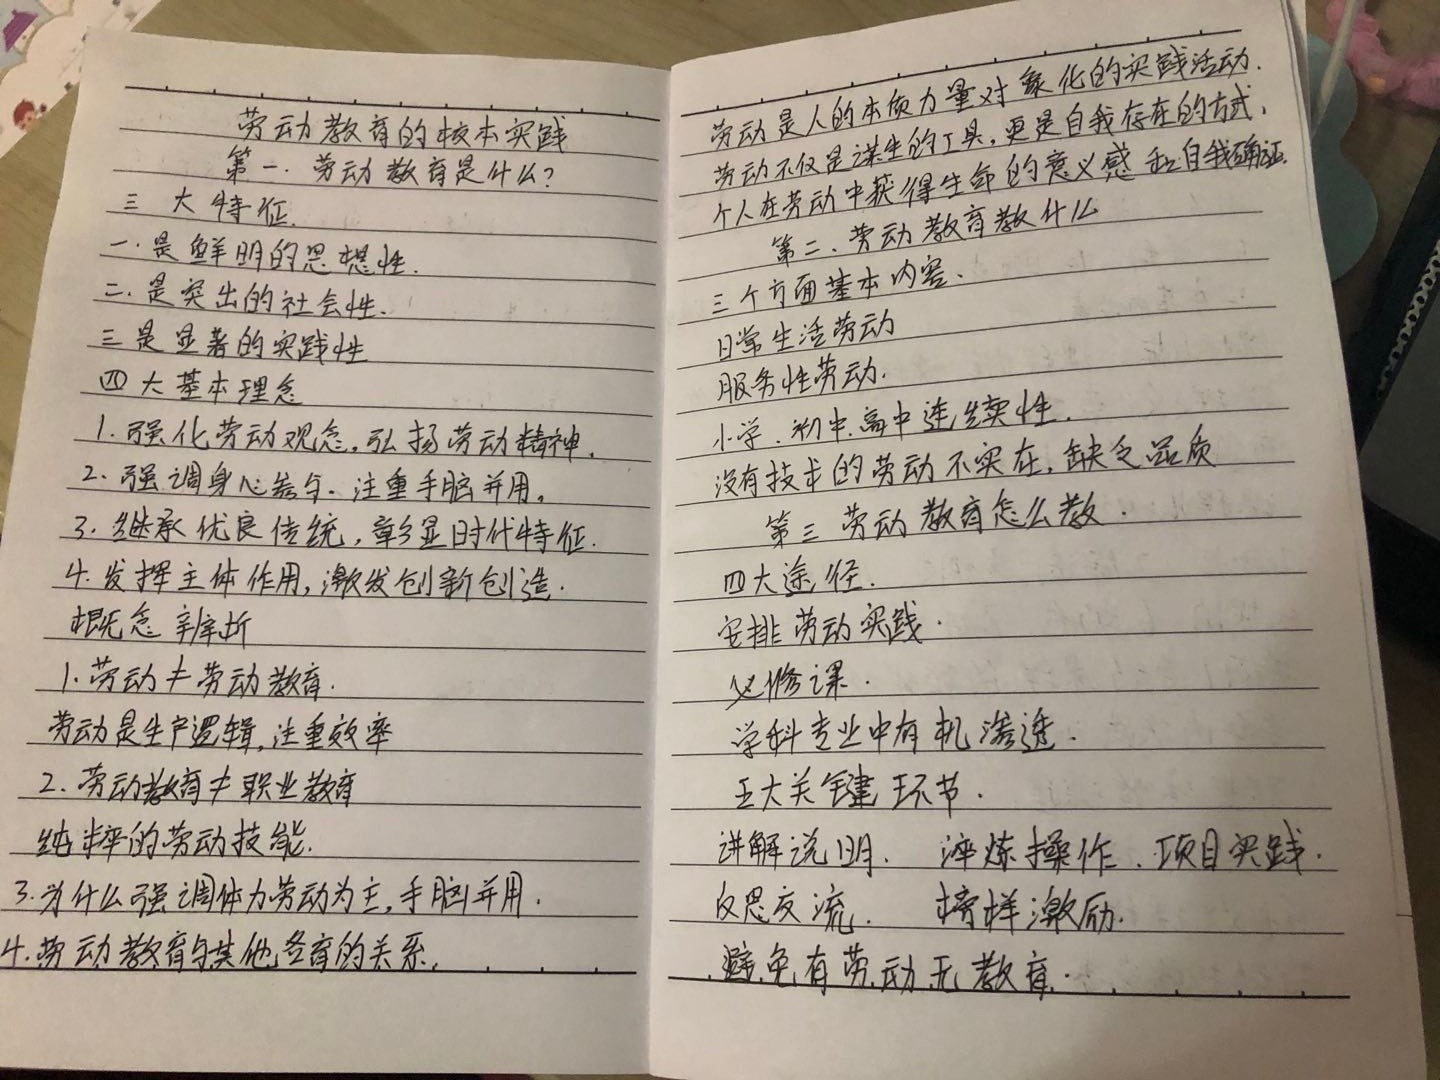 劳动教育的校本实践
第一.劳动教育是什么?
三大特征.
一.是鲜明的思想性.
二.是突出的社会性.
三是显著的实践性
四大基本理念
1.强化劳动观念,弘扬劳动精神.
2.强调身心参与.注重手脑并用.
3.继承优良传统,彰显时代特征.
4.发挥主体作用,激发创新创造.
概念辨析
1.劳动≠劳动教育.
劳动是生产逻辑,注重效率
2.劳动教育≠职业教育
纯粹的劳动技能.
3.为什么强调体力劳动为主,手脑并用.
4.劳动教育与其他各育的关系.
劳动是人的本质力量对象化的实践活动.
劳动不仅是谋生的工具,更是自我存在的方式,
个人在劳动中获得生命的意义感和自我确证.
第二.劳动教育教什么
三个方面基本内容.
日常生活劳动
服务性劳动.
小学.初中.高中连续性.
没有技术的劳动不实在,缺乏品质
第三劳动教育怎么教.
四大途径.
安排劳动实践.
必修课.
学科专业中有机渗透.
五大关键环节.
讲解说明. 淬炼操作.项目实践.
反思交流. 榜样激励.
避免有劳动无教育.